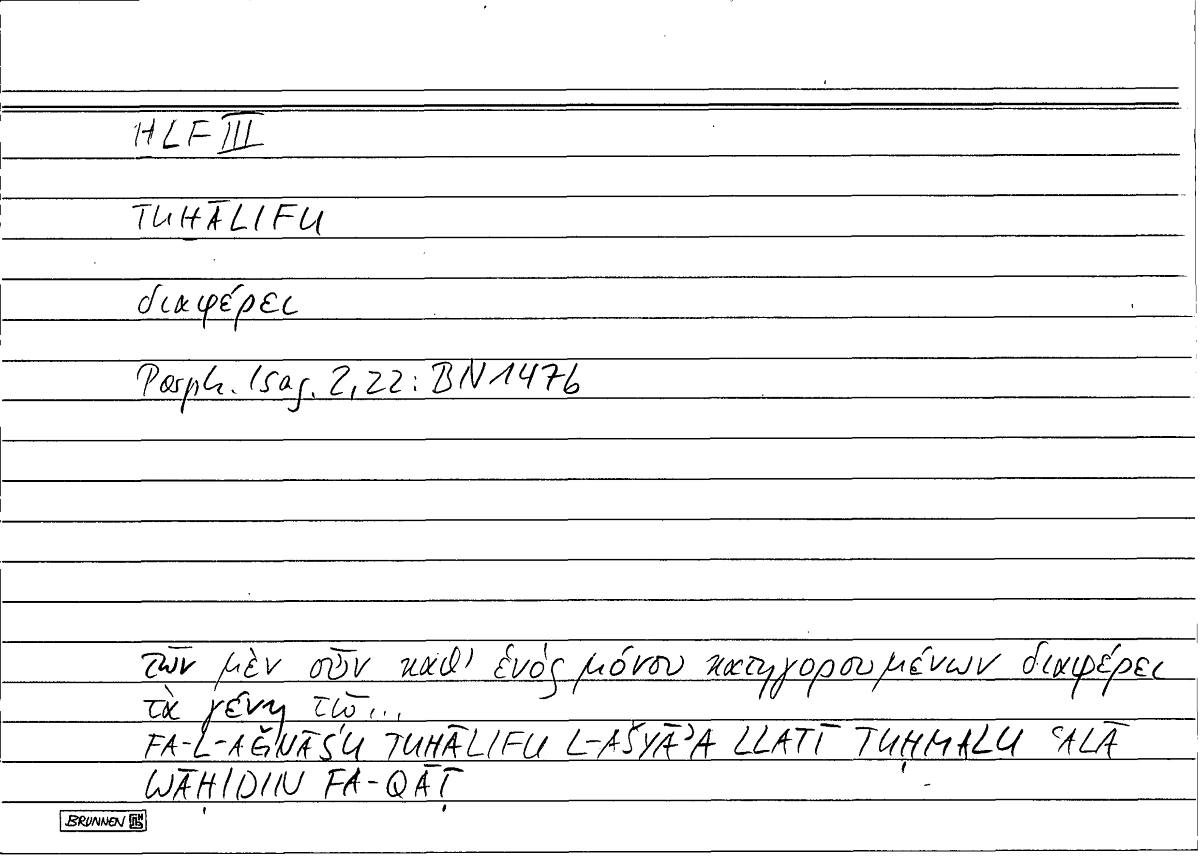 HLF III
TUHĀLIFU
διαφέρει
Porph. Isag. 2,22: BN 147b
τῶν μὲν οὖν καθ' ἑνός μόνου κατηγορουμένων διαφέρει
τὰ γένη τῷ...
FA-L-AǦNĀSU TUHĀLIFU L-AŠYĀʾA LLATĪ TUḤMALU ʿALĀ
WĀḤIDIN FA-QĀṬ
BRUNNEN